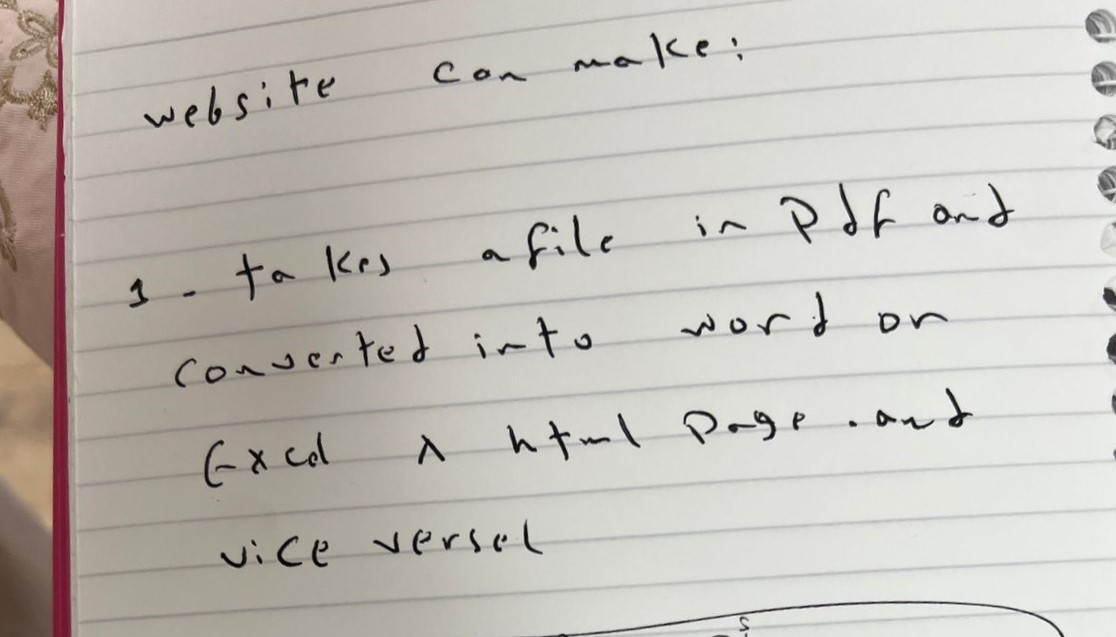 website can make:
1 - takes a file in Pdf and
converted into word or
Excel λ html Page . and
vice versel
s